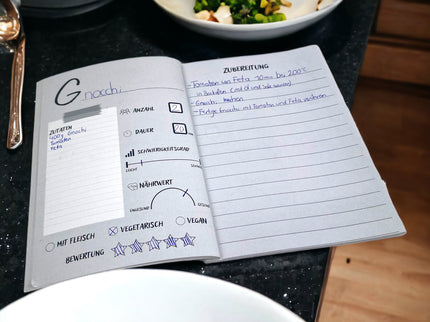 Gnocchi
ZUTATEN
400g Gnocchi
Tomaten
Feta
ANZAHL 2
DAUER 20
SCHWIERIGKEITSGRAD
LEICHT
NÄHRWERT
UNGESUND
MIT FLEISCH
VEGETARISCH
VEGAN
BEWERTUNG
ZUBEREITUNG
- Tomaten und Feta 30min bei 200°C
in Backofen (mit Öl und
- Gnocchi kochen
- Fertige Gnocchi mit Tomaten und Feta